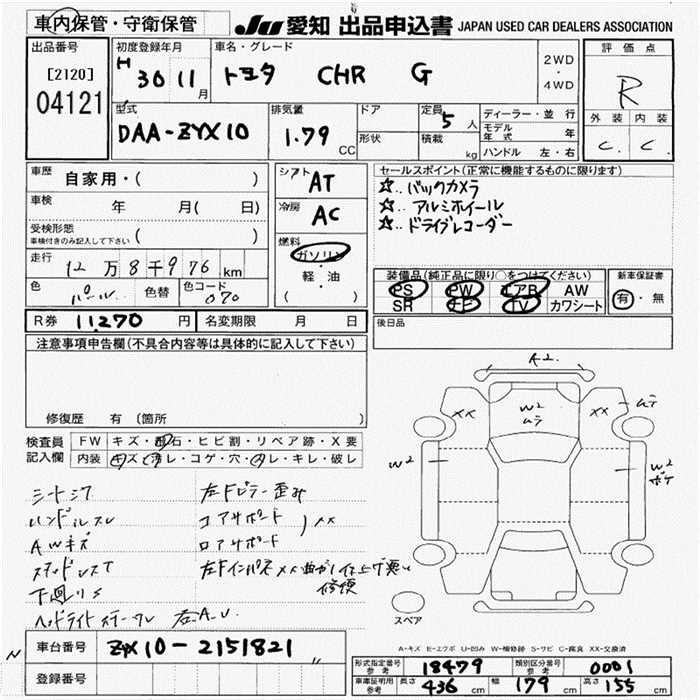 車内保管・守衛保管
JU 愛知 出品申込書 JAPAN USED CAR DEALERS ASSOCIATION
出品番号
[2120]
04121
初度登録年月
H 30 11 月
車名・グレード
トヨタ CHR G
2WD
・
4WD
評価点
R
外装 内装
C C
型式
DAA-ZYX10
排気量
1.79 CC
ドア
形状
定員 5 人
積載 kg
ディーラー・並行
モデル年式 年
ハンドル 左・右
車歴 自家用・( )
車検 年 月( 日)
受検形態
車検付きのみ記入して下さい ( )
走行 12万8千976km
色 パール 色替 色コード 070
シフト AT
冷房 AC
燃料
ガソリン
・
軽・油
( )
セールスポイント(正常に機能するものに限ります)
☆..バックカメラ
☆..アルミホイール
☆..ドライブレコーダー
装備品(純正品に限り○をつけてください)
PS PW エアB AW
SR ナビ TV カワシート
新車保証書
有・無
R券 11,270 円 名変期限 月 日
後日品
注意事項申告欄(不具合内容等は具体的に記入して下さい)
修復歴 有 〔箇所
検査員記入欄
FW キズ・飛石・ヒビ割・リペア跡・X要
内装 キズ・汚レ・コゲ・穴・スレ・キレ・破レ
シートシワ
ハンドルスレ
AWキズ
スタッドレスT
下廻りS
左Fピラー歪み
コアサポート
ロアサポート
XX
左FインパネXX曲がり仕上げ悪い
修復
A2
XX
W2
ムラ
XX
ムラ
W2
W2
ボケ
スペア
車台番号 ZYX10-2151821
登録番号
A-キズ E-エクボ U-凹み W-補修跡 S-サビ C-腐食 XX-交換済
形式指定番号 参考 18479 類別区分番号 参考 0001
車庫証明用 参考 長さ 436cm 幅 179cm 高さ 155cm